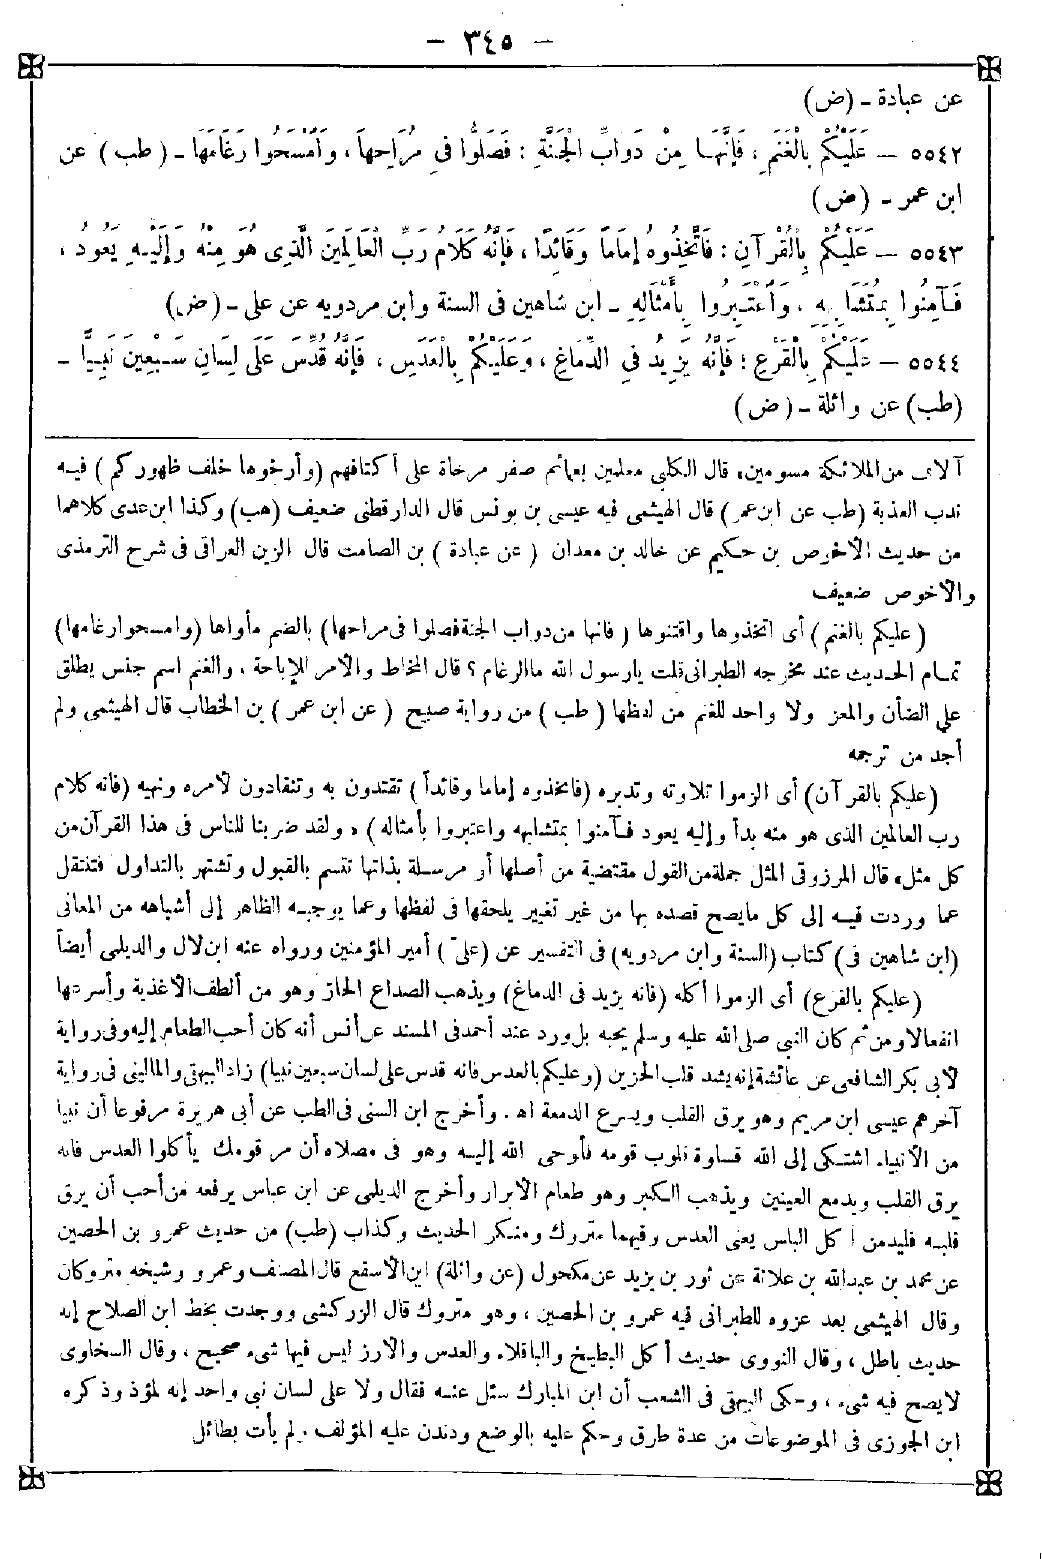 - ٣٤٥ -
عن عبادة - (ض)
٥٥٤٢ - عَلَيْكُمْ بِالْغَنَمِ، فَإِنَّهَا مِنْ دَوَابِّ الْجَنَّةِ: فَصَلُّوا فِي مُرَاحِهَا، وَامْسَحُوا رَغَامَهَا - (طب) عن
ابن عمر - (ض)
٥٥٤٣ - عَلَيْكُمْ بِالْقُرْآنِ: فَاتَّخِذُوهُ إِمَامًا وَقَائِدًا، فَإِنَّهُ كَلَامُ رَبِّ الْعَالَمِينَ الَّذِى هُوَ مِنْهُ وَإِلَيْهِ يَعُودُ،
فَآمِنُوا بِمُتَشَابِهِ، وَاعْتَبِرُوا بِأَمْثَالِهِ - ابن شاهين فى السنة وابن مردويه عن على - (ض)
٥٥٤٤ - عَلَيْكُمْ بِالْقَرْعِ؛ فَإِنَّهُ يَزِيدُ فِي الدِّمَاغِ، وَعَلَيْكُمْ بِالْعَدَسِ، فَإِنَّهُ قُدِّسَ عَلَى لِسَانِ سَبْعِينَ نَبِيًّا -
(طب) عن واثلة - (ض)
آلاف من الملائكة مسومين، قال الكلبى معلمين بعمائم صفر مرخاة على أكتافهم (وأرخوها خلف ظهوركم) فيه
ندب العذبة (طب عن ابن عمر) قال الهيثمى فيه عيسى بن يونس قال الدارقطنى ضعيف (هب) وكذا ابن عدى كلاهما
من حديث الأخوص بن حكيم عن خالد بن معدان (عن عبادة) بن الصامت قال الزين العراقى فى شرح الترمذى
والأخوص ضعيف
(عليكم بالغنم) أى اتخذوها واقتنوها (فانها من دواب الجنة فصلوا فى مراحها) بالضم مأواها (وامسحوا رغامها)
تمام الحديث عند مخرجه الطبرانى قلت يارسول الله ماالرغام؟ قال المخاط والأمر للإباحة، والغنم اسم جنس يطلق
على الضأن والمعز ولا واحد للغنم من لفظها (طب) من رواية صبيح (عن ابن عمر) بن الخطاب قال الهيثمى ولم
أجد من ترجمه
(عليكم بالقرآن) أى الزموا تلاوته وتدبره (فاتخذوه إماما وقائداً) تقتدون به وتنقادون لأمره ونهيه (فانه كلام
رب العالمين الذى هو منه بدأ وإليه يعود فآمنوا بمتشابهه واعتبروا بأمثاله) «ولقد ضربنا للناس فى هذا القرآن من
كل مثل» قال المرزوقى المثل جملة من القول مقتضبة من أصلها أو مرسلة بذاتها تتسم بالقبول وتشتهر بالتداول فتنتقل
عما وردت فيه إلى كل مايصح قصده بها من غير تغيير يلحقها فى لفظها وعما يوجبه الظاهر إلى أشباهه من المعانى
(ابن شاهين فى) كتاب (السنة وابن مردويه) فى التفسير عن (علىّ) أمير المؤمنين ورواه عنه ابن لال والديلمى أيضاً
(عليكم بالقرع) أى الزموا أكله (فانه يزيد فى الدماغ) ويذهب الصداع الحار وهو من ألطف الأغذية وأسرعها
انفعالا ومن ثم كان النبى صلى الله عليه وسلم يحبه بل ورد عند أحمد فى المسند عن أنس أنه كان أحب الطعام إليه وفى رواية
لأبى بكر الشافعى عن عائشة إنه يشد قلب الحزين (وعليكم بالعدس فانه قدس على لسان سبعين نبيا) زاد البيهقى والمالينى فى رواية
آخرهم عيسى ابن مريم وهو يرق القلب ويسرع الدمعة اه. وأخرج ابن السنى فى الطب عن أبى هريرة مرفوعا أن نبيا
من الأنبياء اشتكى إلى الله قساوة قلوب قومه فأوحى الله إليه وهو فى مصلاه أن مر قومك يأكلوا العدس فانه
يرق القلب ويدمع العينين ويذهب الكبر وهو طعام الأبرار وأخرج الديلمى عن ابن عباس يرفعه من أحب أن يرق
قلبه فليدمن أكل البلس يعنى العدس وفيهما متروك ومنكر الحديث وكذاب (طب) من حديث عمرو بن الحصين
عن محمد بن عبدالله بن علاثة عن ثور بن يزيد عن مكحول (عن واثلة) ابن الأسقع قال المصنف وعمرو وشيخه متروكان
وقال الهيثمى بعد عزوه للطبرانى فيه عمرو بن الحصين، وهو متروك قال الزركشى ووجدت بخط ابن الصلاح إنه
حديث باطل، وقال النووى حديث أكل البطيخ والباقلاء والعدس والأرز ليس فيها شىء صحيح، وقال السخاوى
لايصح فيه شىء، وحكى البيهقى فى الشعب أن ابن المبارك سئل عنه فقال ولا على لسان نبى واحد إنه لمؤذ وذكره
ابن الجوزى فى الموضوعات من عدة طرق وحكم عليه بالوضع ودندن عليه المؤلف، ولم يأت بطائل